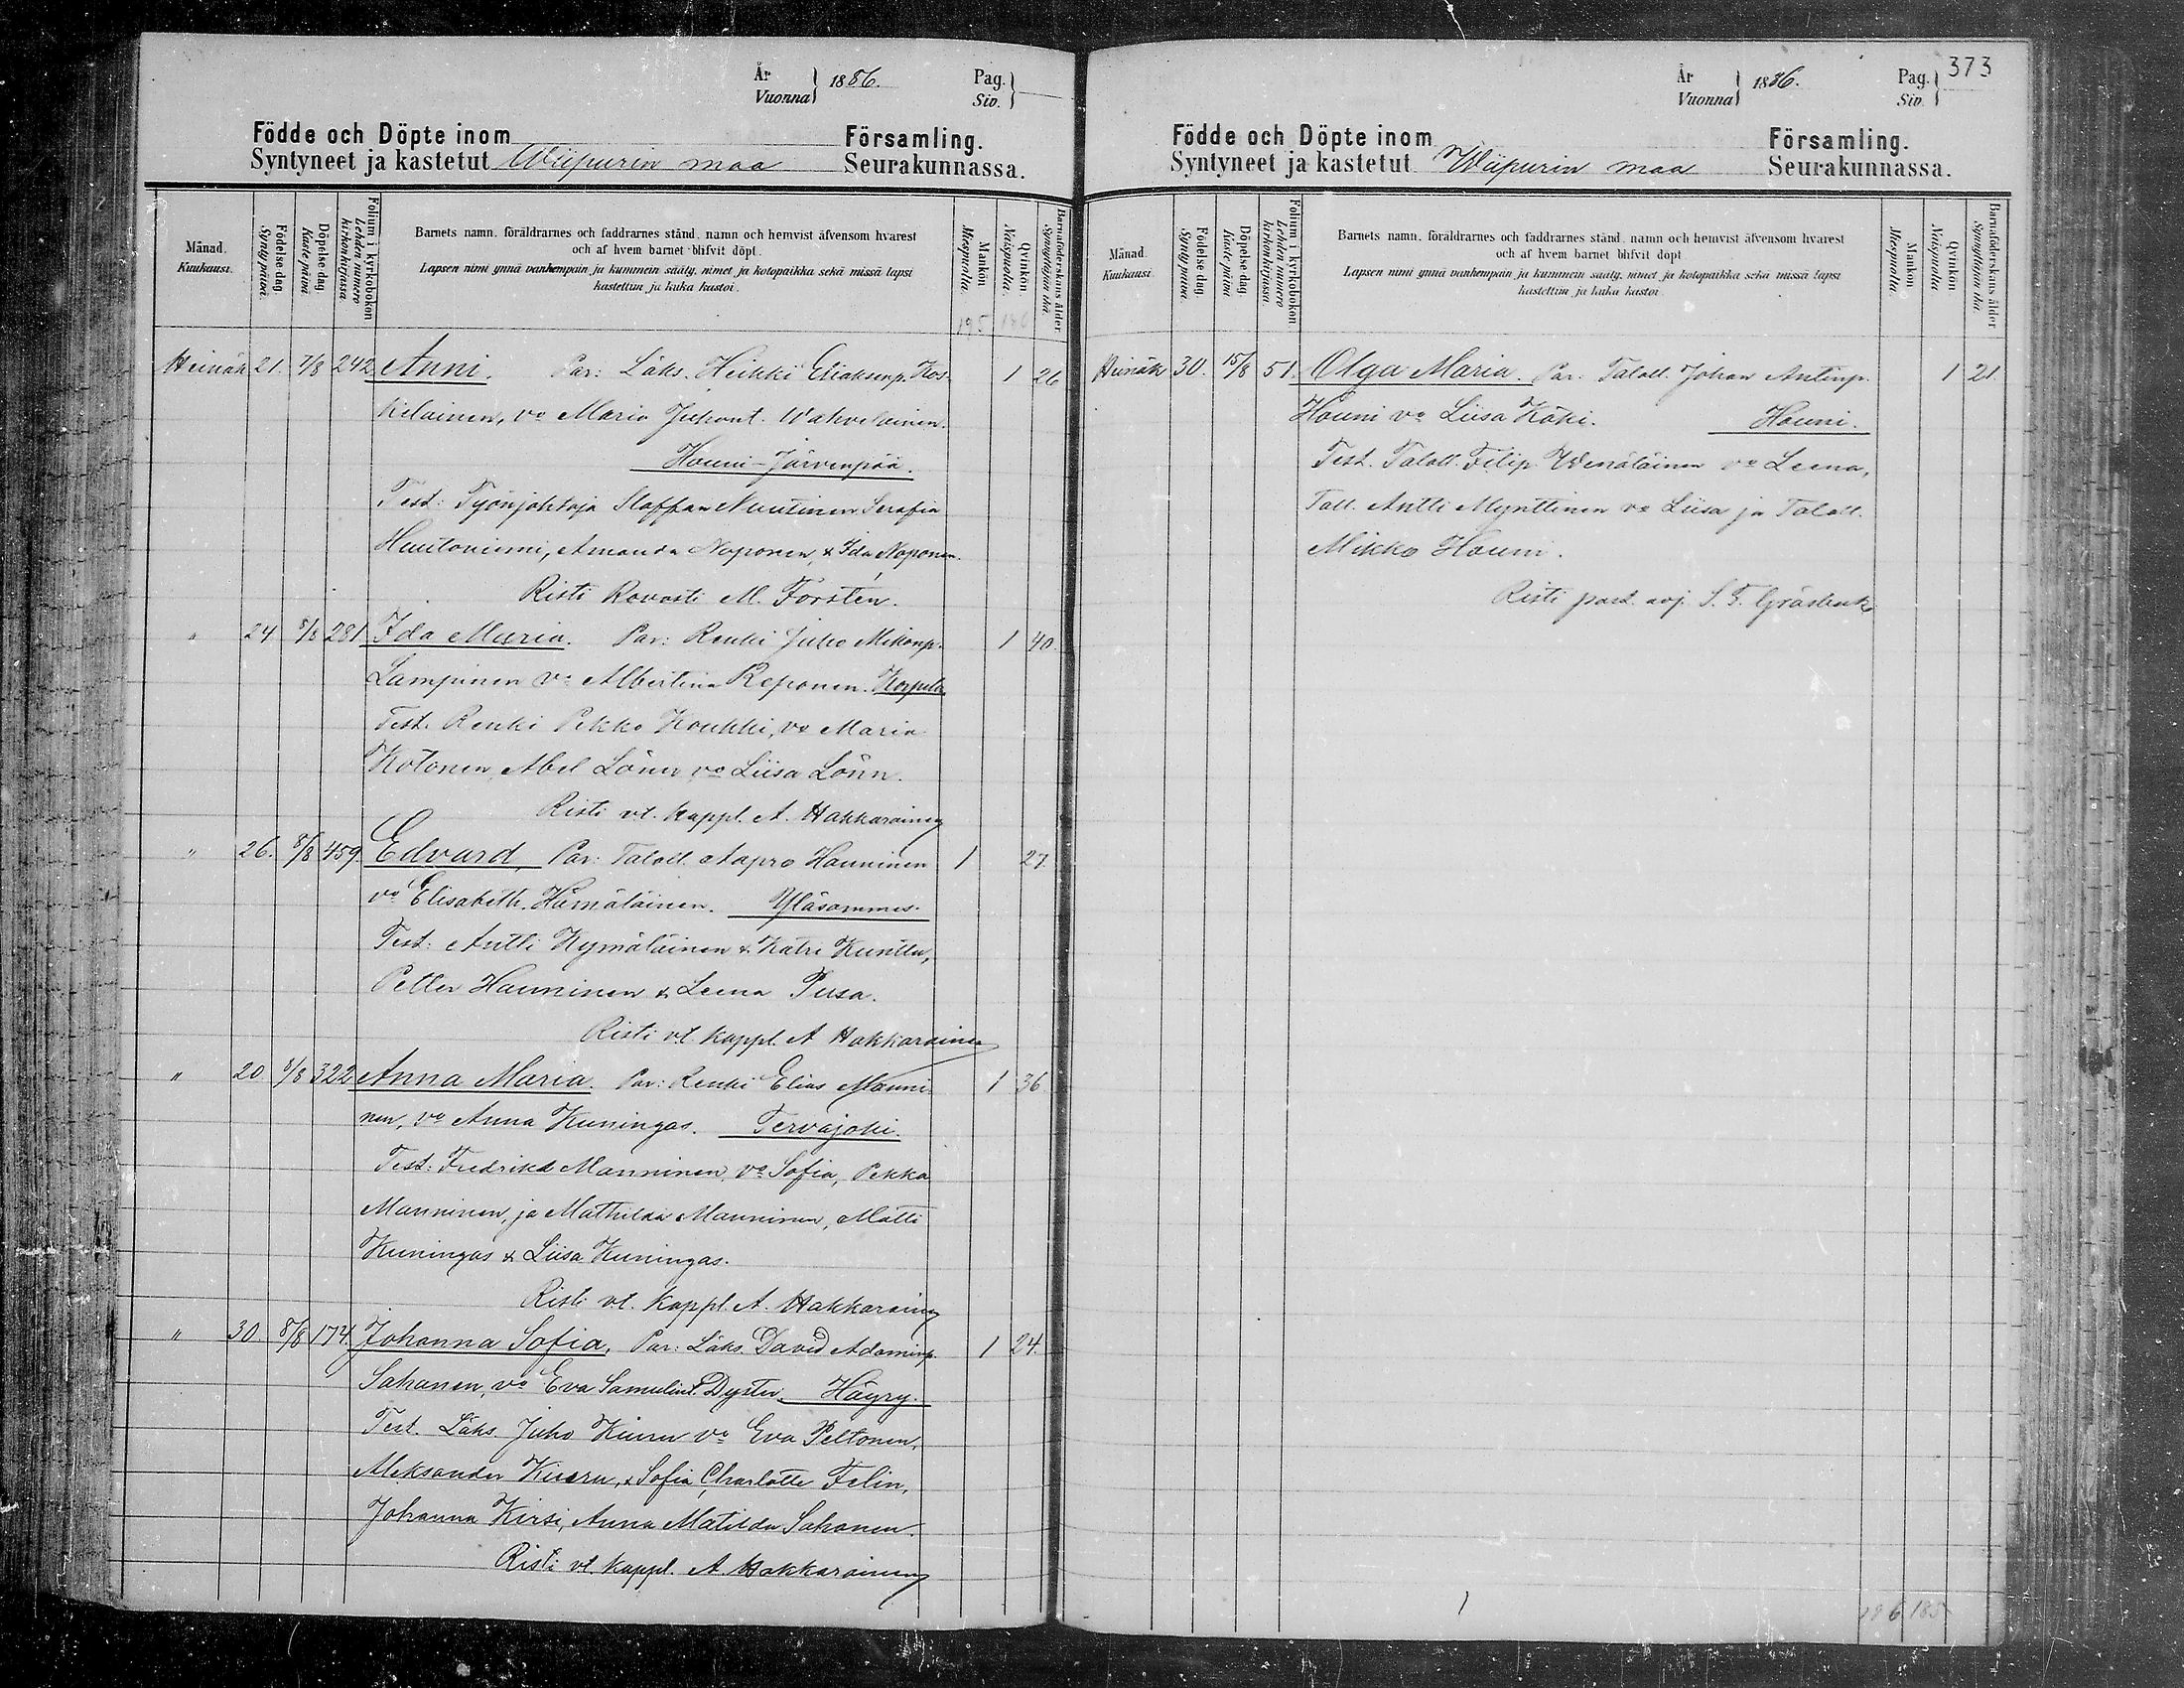 År
Vuonna } 1886.
Pag.
Siv. } —
Födde och Döpte inom Församling.
Syntyneet ja kastetut Wiipurin maa Seurakunnassa.
Månad. Kuukausi.
Födelsedag. Syntypäivä.
Döpelsedag. Kastepäivä.
Folium i kyrkoboken Lehden numero kirkonkirjassa.
Barnets namn, föräldrarnes och faddrarnes stånd, namn och hemvist äfvensom hvarest
och af hvem barnet blifvit döpt.
Lapsen nimi ynnä vanhempain ja kummein sääty, nimet ja kotopaikka sekä missä lapsi
kastettiin ja kuka kastoi.
Mankön Miespuolia.
Qvinkön. Naispuolia.
Barnaföderskans ålder Synnyttäjän ikä.
195 186
Heinäk 21. 7/8 242 Anni. Par: Läks. Heikki Eliaksenp. Kos- 1 26
kelainen, vo Maria Juhont. Wahvelainen.
Houni-Järvenpää.
Test: Työnjohtaja Staffan Nuutinen Serafia
Hautoniemi, Amanda Naponen, & Ida Naponen.
Risti Rovasti M. Forstén.
" 24 8/8 281 Ida Maria. Par: Renki Juho Mikonp. 1 40.
Lampinen vo Albertina Reponen. Korpela
Test. Renki Pekko Koukki, vo Maria
Kötönen, Abel Lönn vo Liisa Lönn.
Risti vt. kappl. A. Hakkarainen
" 26. 8/8 459. Edvard, Par: Taloll. Aapro Hanninen 1 27.
vo Elisabeth. Hämäläinen. Yläsommes.
Test: Antti Kymäläinen & Katri Kunttu,
Petter Hanninen & Leena Pusa.
Risti vt. kappl. A Hakkarainen
" 20 8/8 322 Anna Maria. Par: Renki Elias Manni- 1 36
nen, vo Anna Kuningas. Tervajoki.
Test: Fredrikd Manninen, vo Sofia, Pekka
Manninen, ja Mathilda Manninen, Matti
Kuningas & Liisa Kuningas.
Risti vt. kappl. A. Hakkarainen
" 30 8/8 174. Johanna Sofia, Par: Läks. David Adaminp. 1 24.
Sahanen, vo Eva Samulint. Dyster. Häyry.
Test. Läks. Juho Kiuru vo Eva Peltonen,
Aleksander Kiuru, & Sofia Charlotte Felin,
Johanna Kirsi, Anna Matilda Sahanen.
Risti vt. kappl. A. Hakkarainen
År
Vuonna } 1886.
Pag.
Siv. } 373
Födde och Döpte inom Församling.
Syntyneet ja kastetut Wiipurin maa Seurakunnassa.
Månad. Kuukausi.
Födelsedag. Syntypäivä.
Döpelsedag. Kastepäivä.
Folium i kyrkoboken Lehden numero kirkonkirjassa.
Barnets namn, föräldrarnes och faddrarnes stånd, namn och hemvist äfvensom hvarest
och af hvem barnet blifvit döpt
Lapsen nimi ynnä vanhempain ja kummein sääty, nimet ja kotopaikka sekä missä lapsi
kastettiin ja kuka kastoi.
Mankön Miespuolia.
Qvinkön Naispuolia
Barnaföderskans ålder Synnyttäjän ikä.
Heinäk 30. 15/8 51. Olga Maria. Par. Taloll. Johan Antinp. 1 21.
Houni vo Liisa Käki. Houni.
Test. Taloll. Filip Wenäläinen vo Leena,
Tall. Antti Mynttinen vo Liisa ja Taloll.
Mikko Houni.
Risti past. adj. S. F. Gräsbeck
196 185